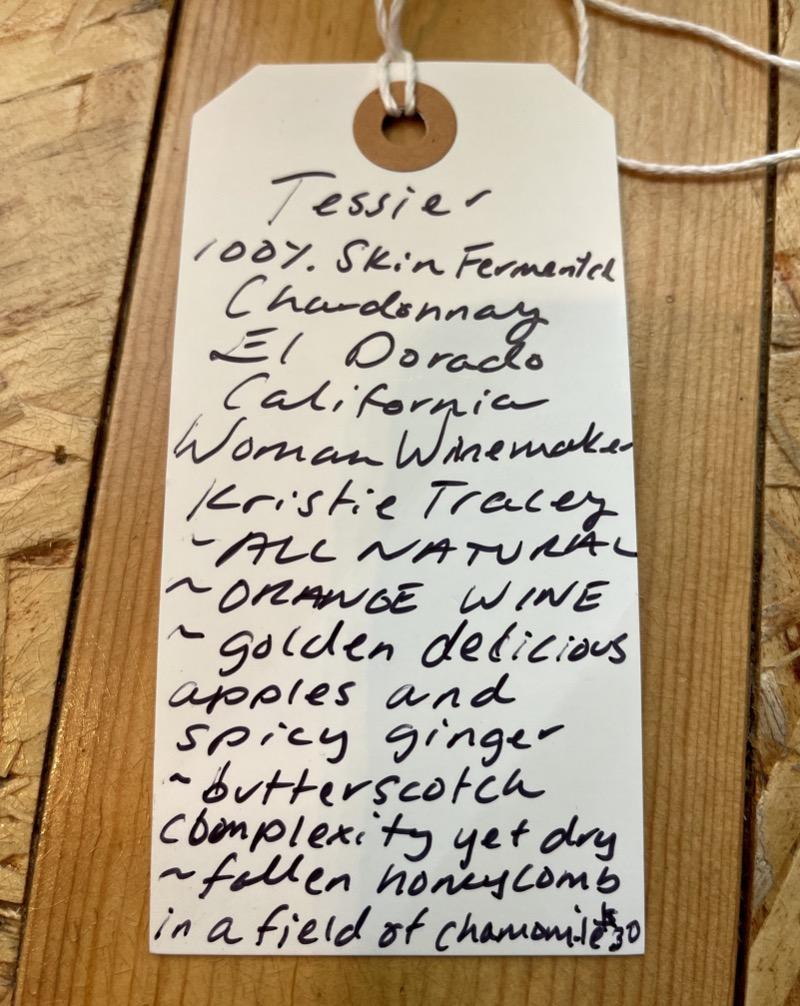 Tessier
100% Skin Fermented
Chardonnay
El Dorado
California
Woman Winemaker
Kristie Tracey
~ALL NATURAL
~ORANGE WINE
~golden delicious
apples and
spicy ginger
~butterscotch
complexity yet dry
~fallen honeycomb
in a field of chamomile $30